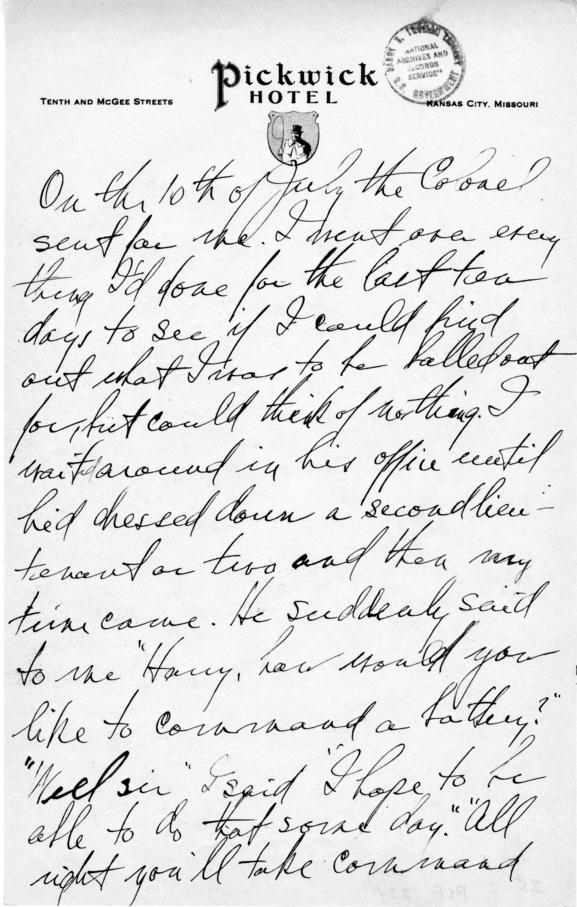 HARRY S. TRUMAN LIBRARY
"NATIONAL
ARCHIVES AND
RECORDS
SERVICE"
U.S. GOVERNMENT
Pickwick
HOTEL
TENTH AND MCGEE STREETS
KANSAS CITY, MISSOURI
On the 10th of July the Colonel
sent for me. I went over every
thing I'd done for the last ten
days to see if I could find
out what I was to be balled out
for, but could think of nothing. I
waited around in his office until
he'd dressed down a second lieu-
tenant or two and then my
turn came. He suddenly said
to me "Harry, how would you
like to command a battery?"
"Well sir" I said "I hope to be
able to do that some day." "All
right you'll take command